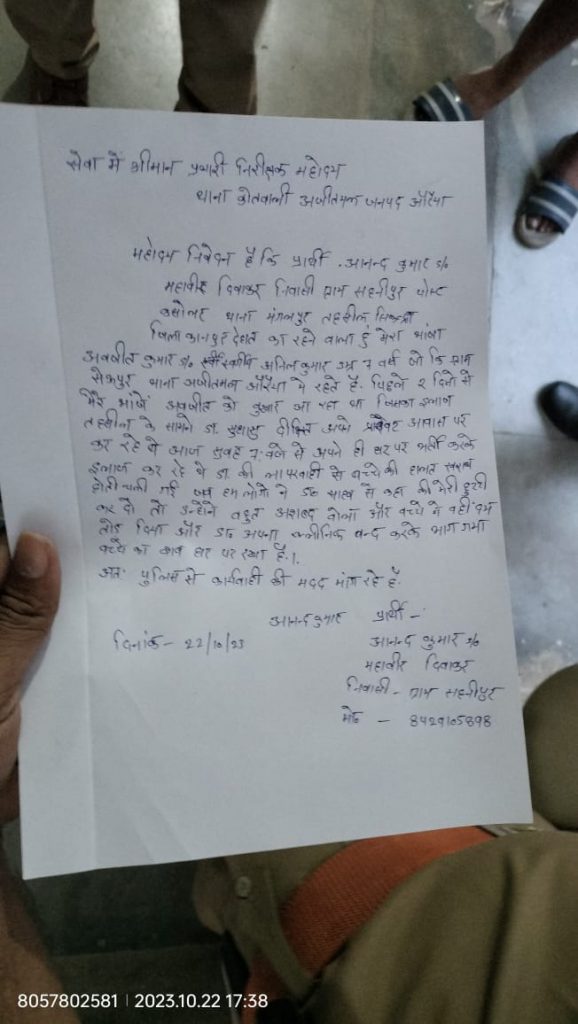 सेवा में श्रीमान प्रभारी निरीक्षक महोदय
थाना कोतवाली अजीतमल जनपद औरैया
महोदय निवेदन है कि प्रार्थी आनन्द कुमार s/o
महावीर दिवाकर निवासी ग्राम सहनीपुर पोस्ट
थाना मंगलपुर तहसील सिकन्दरा
जिला कानपुर देहात का रहने वाला हूं मेरा भांजा
अवनीत कुमार s/o स्वर्गीय अनिल कुमार उम्र 7 वर्ष जो कि ग्राम
थाना अजीतमल औरैया में रहते हैं. पिछले 2 दिनो से
मेरे भांजे अवनीत को बुखार आ रहा था जिसका इलाज
तहसील के सामने डा. दीक्षित अपने प्राईवेट आवास पर
कर रहे थे आज सुबह 7: बजे से अपने ही घर पर भर्ती करके
इलाज कर रहे थे डा. की लापरवाही से बच्चे की हालत खराब
होती चली गई जब हम लोगो ने डा० साहब से कहा की मेरी छुट्टी
कर दो तो उन्होने बहुत अशब्द बोला और बच्चे ने वही दम
तोड़ दिया और डा० अपना क्लीनिक बन्द करके भाग गया
बच्चे का शव घर पर रखा है.।.
अतः पुलिस से कार्यवाही की मदद मांग रहे हैं.
आनन्द कुमार प्रार्थी -
दिनांक - 22/10/23
आनन्द कुमार s/o
महावीर दिवाकर
निवासी - ग्राम सहनीपुर
मो० - 8429105898
8057802581 | 2023.10.22 17:38